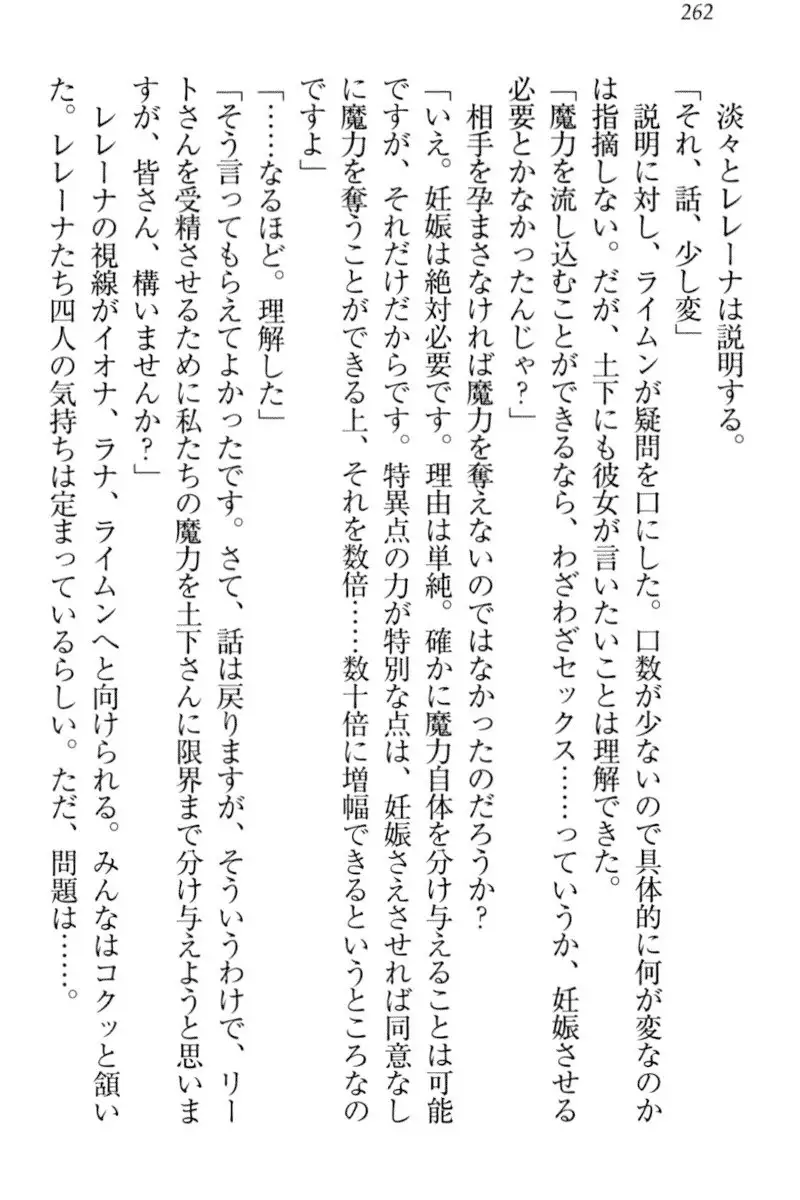 262
淡々とレレーナは説明する。
「それ、話、少し変」
説明に対し、ライムンが疑問を口にした。口数が少ないので具体的に何が変なのか
は指摘しない。だが、土下にも彼女が言いたいことは理解できた。
「魔力を流し込むことができるなら、わざわざセックス……っていうか、妊娠させる
必要とかなかったんじゃ？」
相手を孕まさなければ魔力を奪えないのではなかったのだろうか？
「いえ。妊娠は絶対必要です。理由は単純。確かに魔力自体を分け与えることは可能
ですが、それだけだからです。特異点の力が特別な点は、妊娠さえさせれば同意なし
に魔力を奪うことができる上、それを数倍……数十倍に増幅できるというところなの
ですよ」
「……なるほど。理解した」
「そう言ってもらえてよかったです。さて、話は戻りますが、そういうわけで、リー
トさんを受精させるために私たちの魔力を土下さんに限界まで分け与えようと思いま
すが、皆さん、構いませんか？」
レレーナの視線がイオナ、ラナ、ライムンへと向けられる。みんなはコクッと頷い
た。レレーナたち四人の気持ちは定まっているらしい。ただ、問題は……。